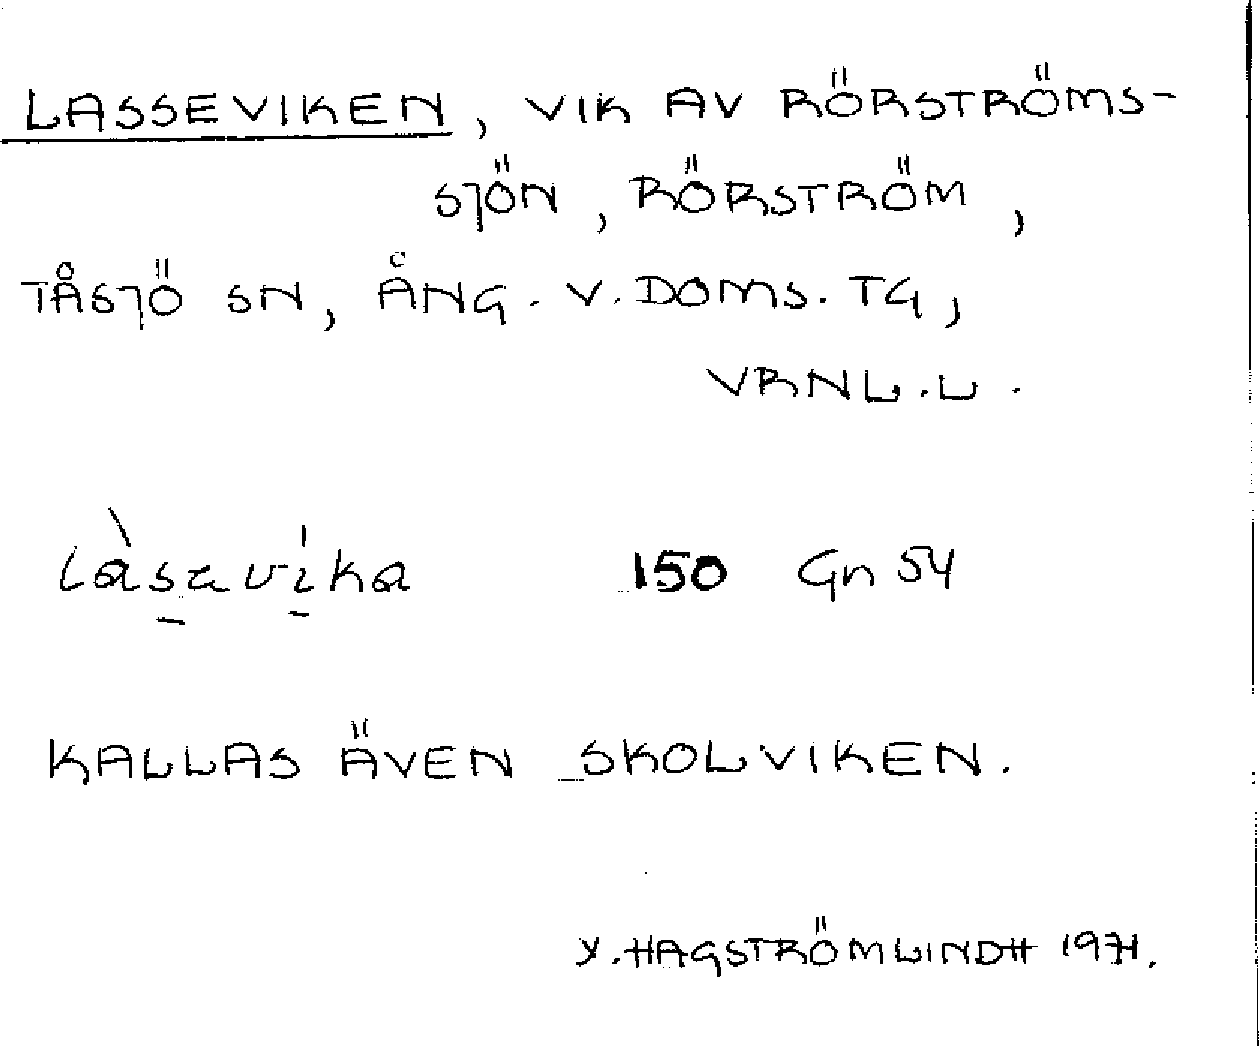 LASSEVIKEN, VIK AV RÖRSTRÖMS-
SJÖN, RÖRSTRÖM,
TÅSJÖ SN, ÅNG. V. DOMS. TG,
VRNL. L.
làsavika 150 Gn 54
KALLAS ÄVEN SKOLVIKEN.
Y. HAGSTRÖM LINDH 1971.